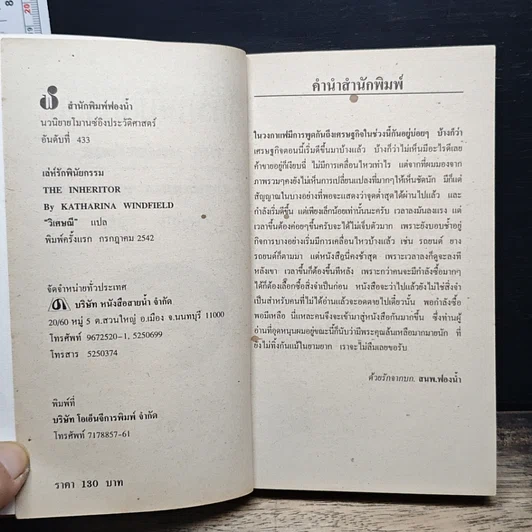 สำนักพิมพ์ฟองน้ำ
นวนิยายโรมานซ์อิงประวัติศาสตร์
อันดับที่ 433
เล่ห์รักพินัยกรรม
THE INHERITOR
By KATHARINA WINDFIELD
"วิเศษณี" แปล
พิมพ์ครั้งแรก กรกฎาคม 2542
จัดจำหน่ายทั่วประเทศ
บริษัท หนังสือสายน้ำ จำกัด
20/60 หมู่ 5 ต.สวนใหญ่ อ.เมือง จ.นนทบุรี 11000
โทรศัพท์ 9672520-1, 5250699
โทรสาร 5250374
พิมพ์ที่
บริษัท โอเอ็นจีการพิมพ์ จำกัด
โทรศัพท์ 7178857-61
ราคา 130 บาท
คำนำสำนักพิมพ์
ในวงกาแฟมีการพูดกันถึงเศรษฐกิจในช่วงนี้กันอยู่บ่อยๆ บ้างก็ว่า
เศรษฐกิจตอนนี้เริ่มดีขึ้นมาบ้างแล้ว บ้างก็ว่าไม่เห็นมีอะไรดีเลย
ค้าขายอยู่ก็เงียบฉี่ ไม่มีการเคลื่อนไหวเท่าไร แต่จากที่ผมมองจาก
ภาพรวมๆคงยังไม่เห็นการเปลี่ยนแปลงที่มากๆให้เห็นชัดนัก มีก็แต่
สัญญาณในบางอย่างที่พอจะแสดงว่าจุดต่ำสุดได้ผ่านไปแล้ว และ
กำลังเริ่มดีขึ้น แต่เพียงเล็กน้อยเท่านั้นนะครับ เวลาลงมันลงแรง แต่
เวลาขึ้นต้องค่อยๆขึ้นครับจะได้ไม่เจ็บตัวมาก เพราะยังบอบช้ำอยู่
กิจการบางอย่างเริ่มมีการเคลื่อนไหวบ้างแล้ว เช่น รถยนต์ ยาง
รถยนต์ก็ตามมา แต่หนังสือนี่คงช้าสุด เพราะเวลาลงก็ดูจะลงที
หลังเขา เวลาขึ้นก็ต้องขึ้นทีหลัง เพราะกว่าคนจะมีกำลังซื้อมากๆ
ได้ก็ต้องเลือกซื้อสิ่งจำเป็นก่อน หนังสือจะว่าไปแล้วยังไม่ใช่สิ่งจำ
เป็นสำหรับคนที่ไม่ได้อ่านแล้วจะอดตายไปเดี๋ยวนั้น พอกำลังซื้อ
พอมีเหลือ นี่แหละคนจึงจะเข้ามาสู่หนังสือกันมากขึ้น ซึ่งท่านผู้
อ่านที่อุดหนุนผมอยู่ขณะนี้ก็นับว่ามีพระคุณล้นเหลือมากมายนัก ที่
ยังไม่ทิ้งกันแม้ในยามยาก เราจะไม่ลืมเลยขอรับ
ด้วยรักจากบก. สนพ.ฟองน้ำ